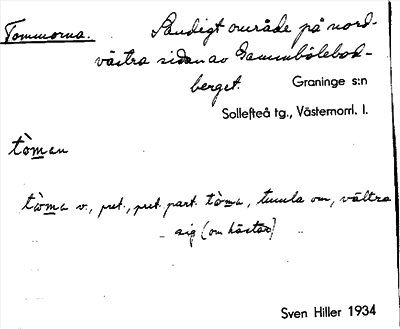 Tommorna. Sandigt område på nord-
västra sidan av Gammbölebod-
berget.
Graninge s:n
Sollefteå tg., Västernorrl. l.
tòman
tòma v., pret., pret. part. tòma, tumla om, vältra
sig (om hästar)
Sven Hiller 1934